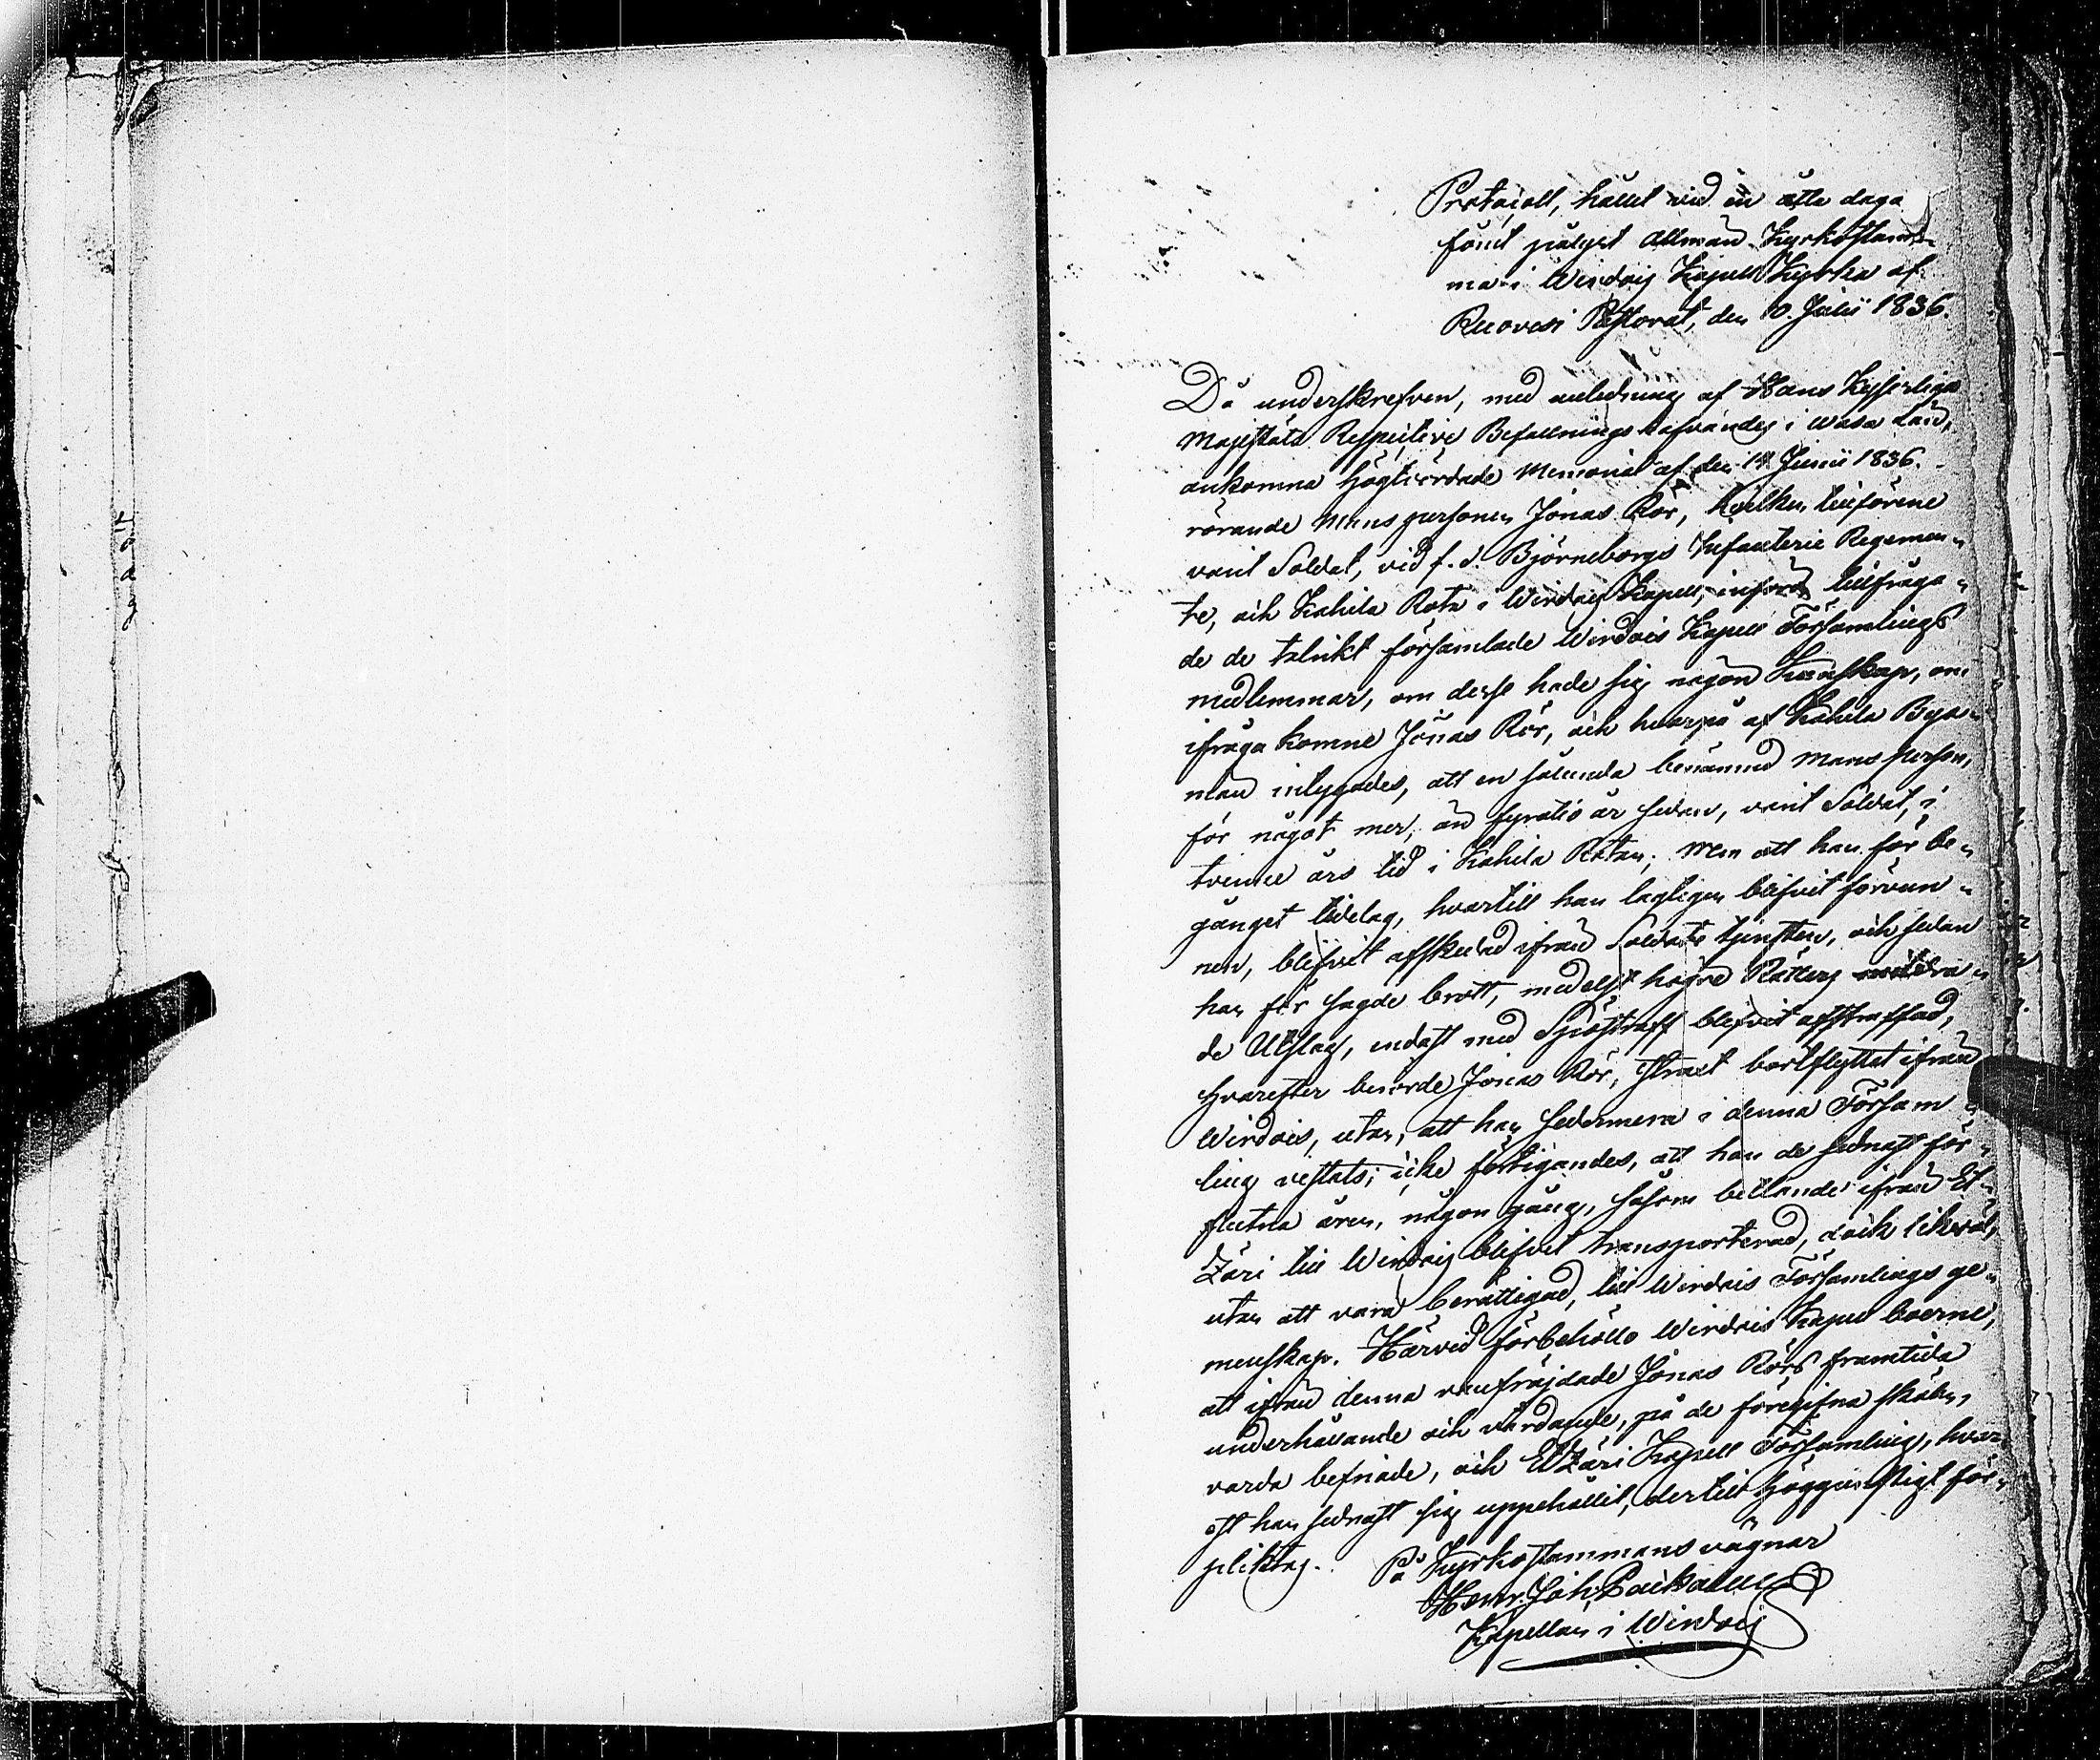 Protocoll, hållet vid en åtta daga
förut pålyst Allmän Kyrkostäm-
ma i Wirdois Kapell Kyrka af
Ruovesi Pastorat, den 10. Julii 1836.
Då underskrefven, med anledning af Hans Kejserliga
Majestäts Respective Befallningshafvandes i Wasa Län,
ankomna högtvördade Memorial af den 14 Junii 1836.
rörande Manspersonen Jonas Rör, hvilken tillförene
varit Soldat, vid f. d. Björneborgs Infanterie Regemen-
te, och Kahila Rota i Wirdois Kapell, tillfråga-
de de talrikt församlade Wirdois Kapell Församlings
medlemmar, om desse hade sig någon Kunskap, om
ifråga komne Jonas Rör, och hvarpå af Kahila Bya-
män intygades, att en sålunda benämnd Mansperson,
för något mer, än fyratio år sedan, varit Soldat, i
tvenne års tid i Kahila Rotan; Men att han för be-
gånget tidelag, hvartill han lagligen blifvit förvun-
nen, blifvit afskedad ifrån Soldats tjensten, och sedan
han för sagde brott, medelst högre Rätters
de Utslag, endast med Spöstraff blifvit afstraffad,
hvarefter berörde Jonas Rör, straxt bortflyttat ifrån
Wirdois, utan, att han sedermera i denna Försam-
ling vistats; icke förtigandes, att han de sednast för-
flutna åren, någon gång, såsom bettlande ifrån Et-
zäri till Wirdois blifvit transporterad, dock likväl,
utan att vara berättigad, till Wirdois Församlings ge-
menskap. Härvid förbehöllo Wirdois Kapell boerne,
att ifrån denna vanfräjdade Jonas Rörs framtida
underhållande och vårdande, på de föregifna skälen,
varda befriade, och Etzäri Kapell Församling, hvar-
est han sednast sig uppehållit, dertill höggunstigt för-
pliktas.
På Kyrkostämmans vägnar
Henr. Joh.
Kapellan i Wirdois